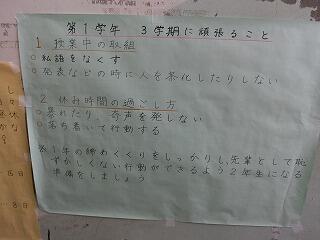 第1学年 3学期に頑張ること
1. 授業中の取組
○私語をなくす
○発表などの時に人を茶化したりしない
2. 休み時間の過ごし方
○暴れたり、奇声を発しない
○落ち着いて行動する
第1学年の締めくくりをしっかりし、先輩として恥
ずかしくない行動ができるよう2年生になる
準備をしましょう